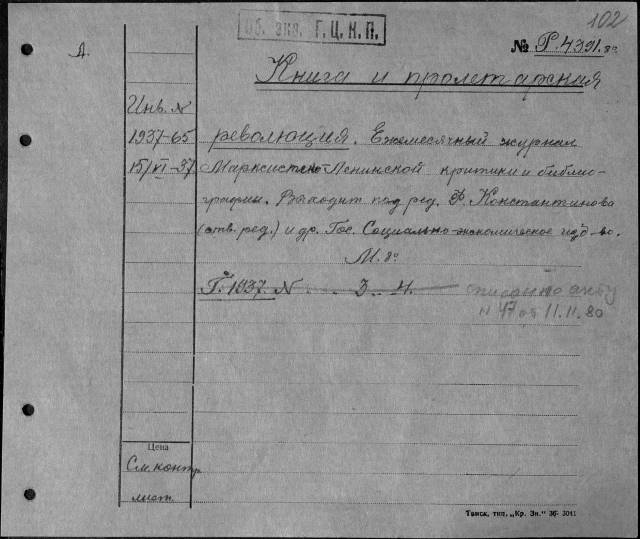 102
Об. экз. Г. Ц. К. П.
Д.
№ Р. 4391. 8°
Книга и пролетарская
Инв. N
1937-65
15/VI-37
революция. Ежемесячный журнал
Марксистско-Ленинской критики и библио-
графии. Выходит под ред. Ф. Константинова
(отв. ред.) и др. Гос. Социально-экономическое изд-во.
М. 8°
Г. 1937. N 3 - 4.
списано по акту
N 47 от 11.11.80
Цена
См. контр.
лист.
Томск, тип. „Кр. Зн." 36- 3041